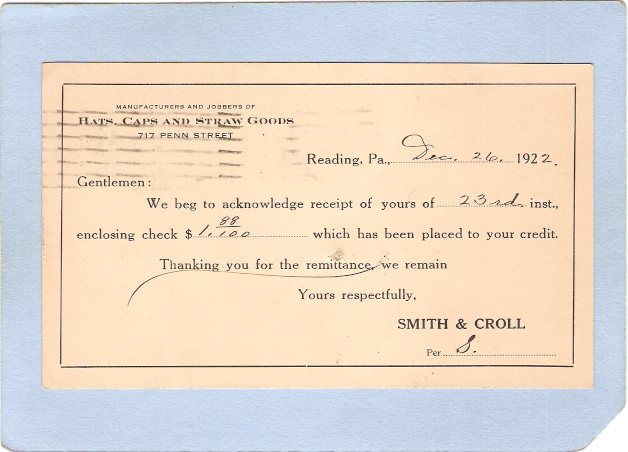 MANUFACTURERS AND JOBBERS OF
HATS, CAPS AND STRAW GOODS
717 PENN STREET
Reading, Pa., Dec. 26, 1922.
Gentlemen:
We beg to acknowledge receipt of yours of 23rd inst.,
enclosing check $ 1.88/100 which has been placed to your credit.
Thanking you for the remittance, we remain
Yours respectfully,
SMITH & CROLL
Per S.